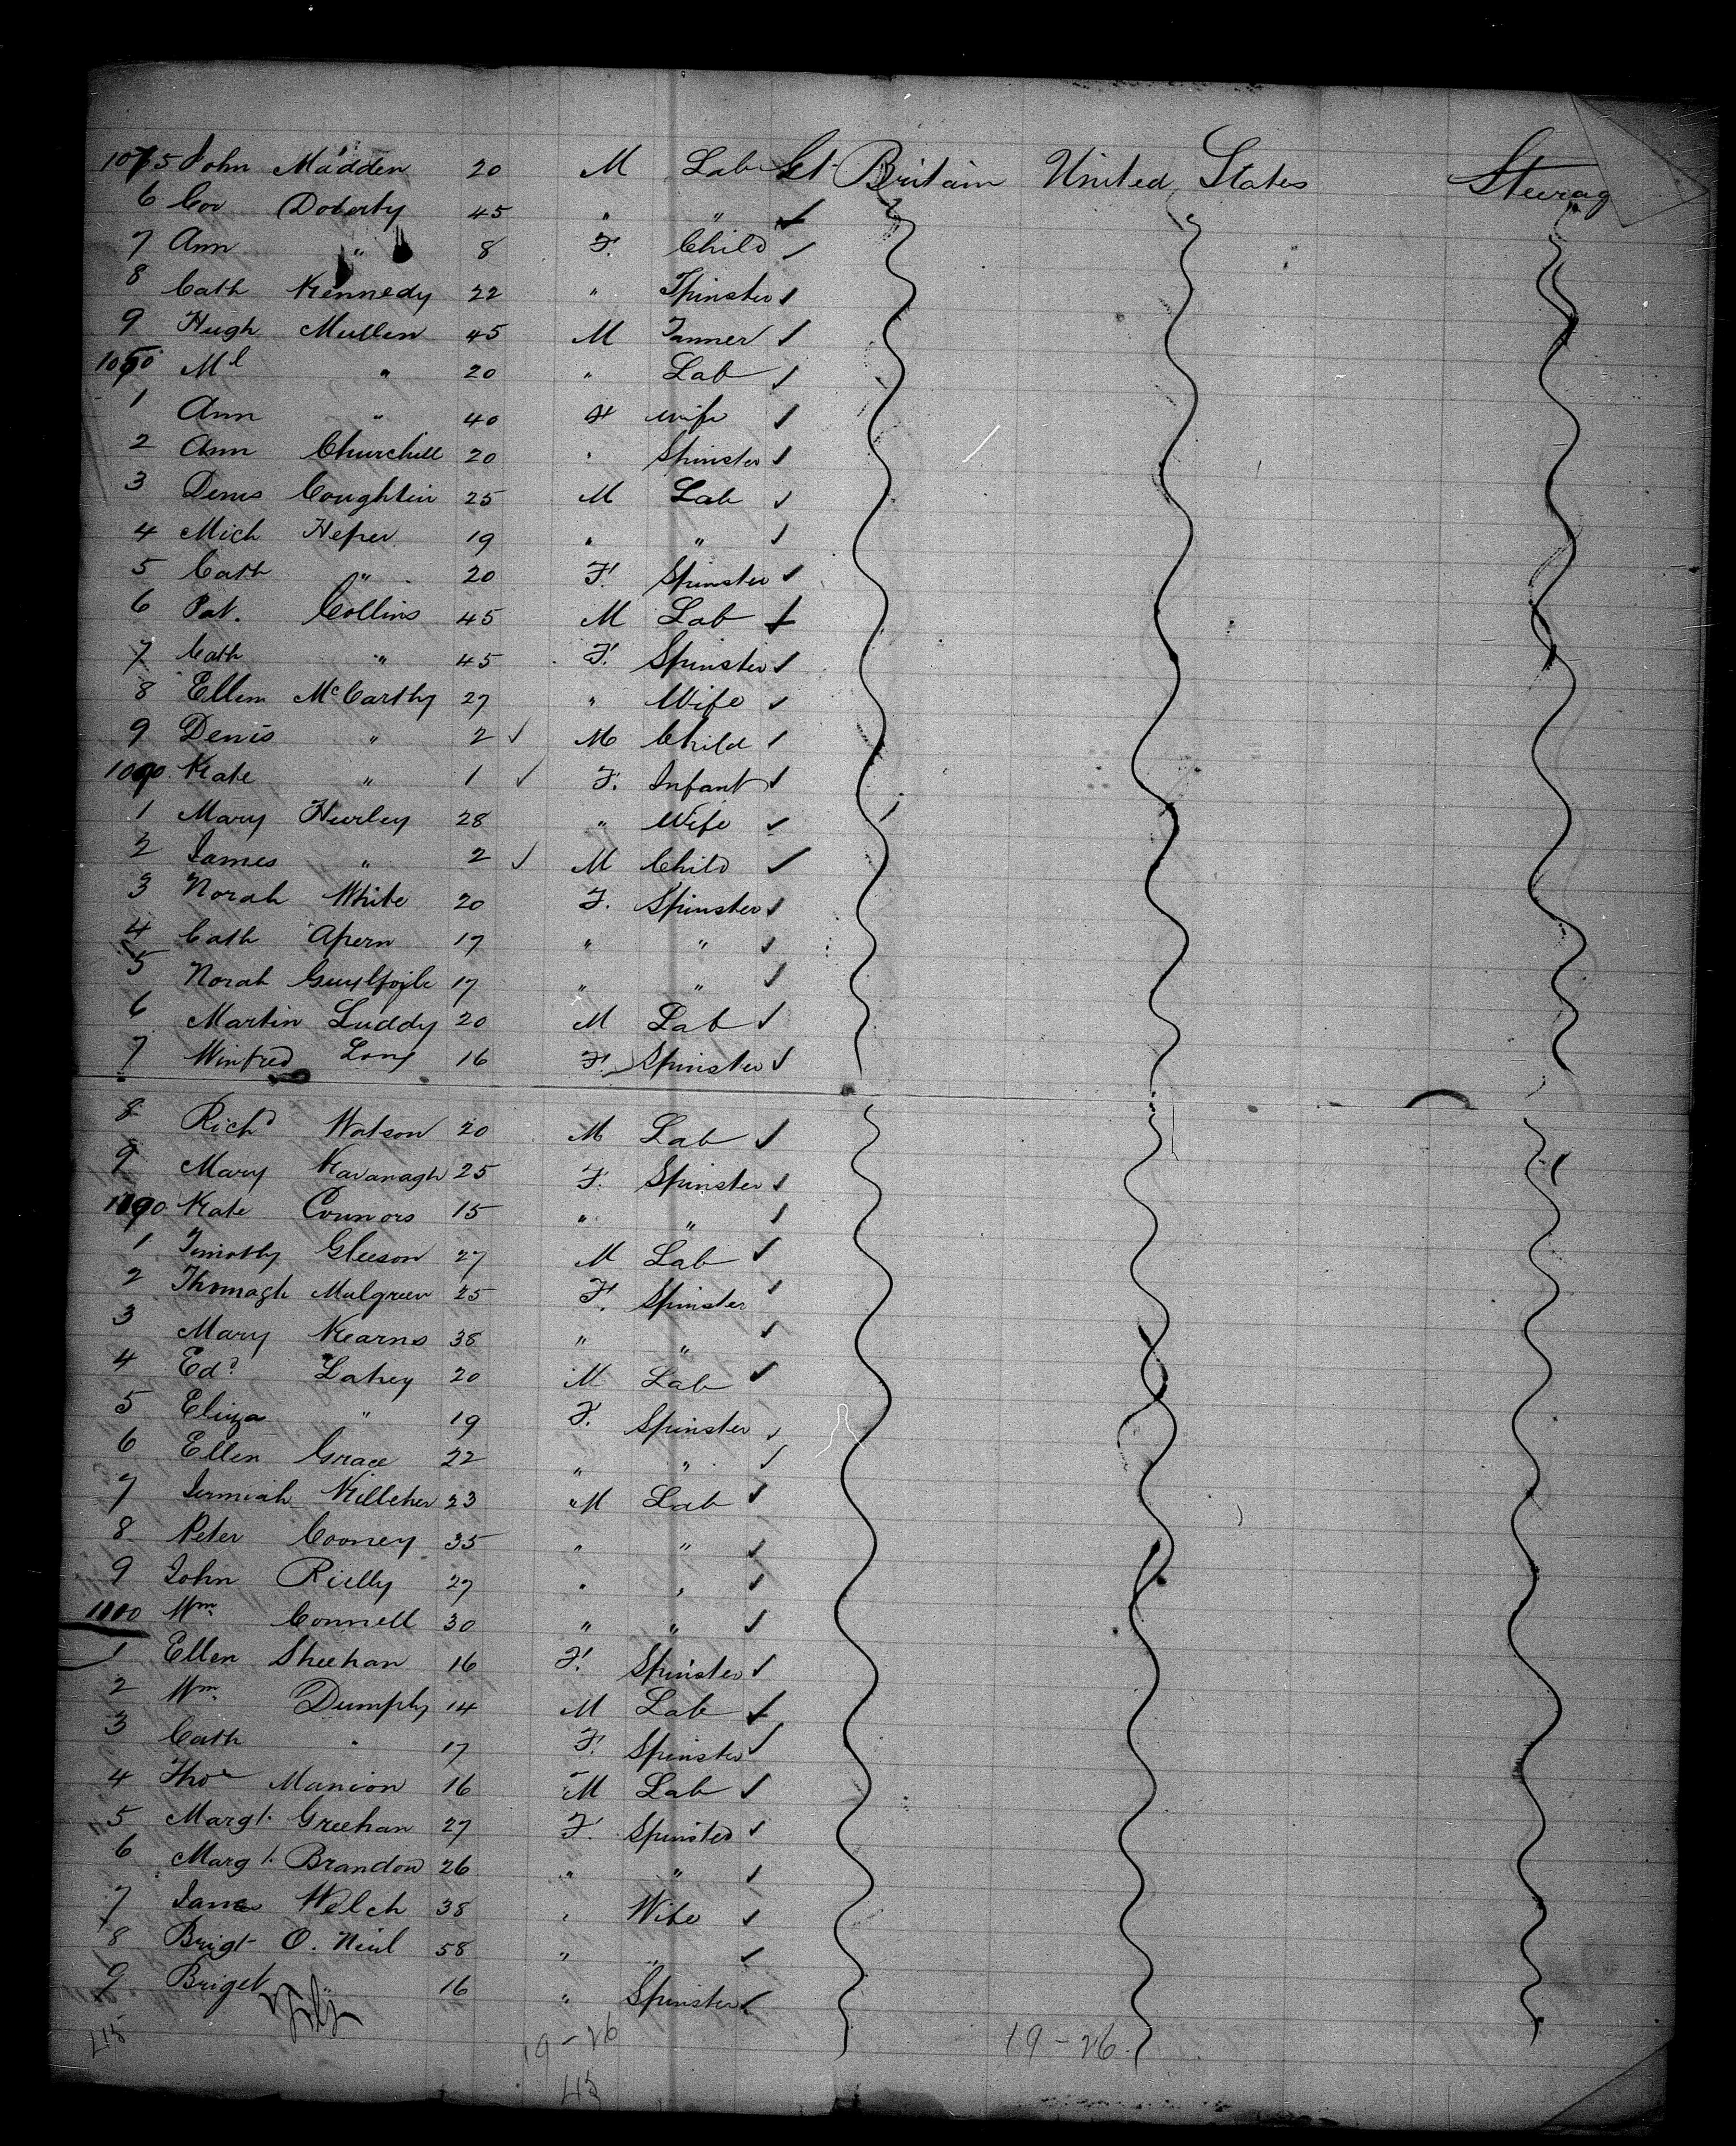 1065 John Madden 20 M Lab Gt Britain United States Steerag
6 Cor Doherty 45 " "
7 Ann " 8 F. Child
8 Cath Kennedy 22 " Spinster
9 Hugh Mullen 45 M Tanner
Ml " 20 " Lab
1 Ann " 40 F wife
2 Ann Churchill 20 " Spinster
3 Denis Coughlin 25 M Lab
4 Mich 19 " "
5 Cath " 20 F. Spinster
6 Pat. Collins 45 M Lab
7 Cath " 45 F. Spinster
8 Ellen McCarthy 27 " Wife
9 Denis " 2 M Child
Kate " 1 F. Infant
1 Mary Hurley 28 " Wife
2 James " 2 M Child
3 Norah White 20 F. Spinster
4 Cath Ahern 17 " "
5 Norah 17 " "
6 Martin Luddy 20 M Lab
7 Winfred Long 16 F. Spinster
8 Richd Watson 20 M Lab
9 Mary Kavanagh 25 F. Spinster
Kate Connors 15 " "
1 Timothy Gleeson 27 M Lab
2 Mulgreen 25 F. Spinster
3 Mary Kearns 38 " "
4 Edd Lahey 20 M Lab
5 Eliza " 19 F. Spinster
6 Ellen Grace 22 " "
7 Jermiah Killeher 23 " M Lab
8 Peter Cooney 35 " "
9 John Rielly 27 " "
Wm Connell 30 " "
1 Ellen Sheehan 16 F. Spinster
2 Wm Dumphy 14 M Lab
3 Cath " 17 F. Spinster
4 Thos Manion 16 M Lab
5 Margt. Greehan 27 F. Spinster
6 Margt. Brandon 26 " "
7 Jane Welch 38 " Wife
8 Brigt O. Neil 58 " "
9 Briget " 16 " Spinster
19-26 19-26
45